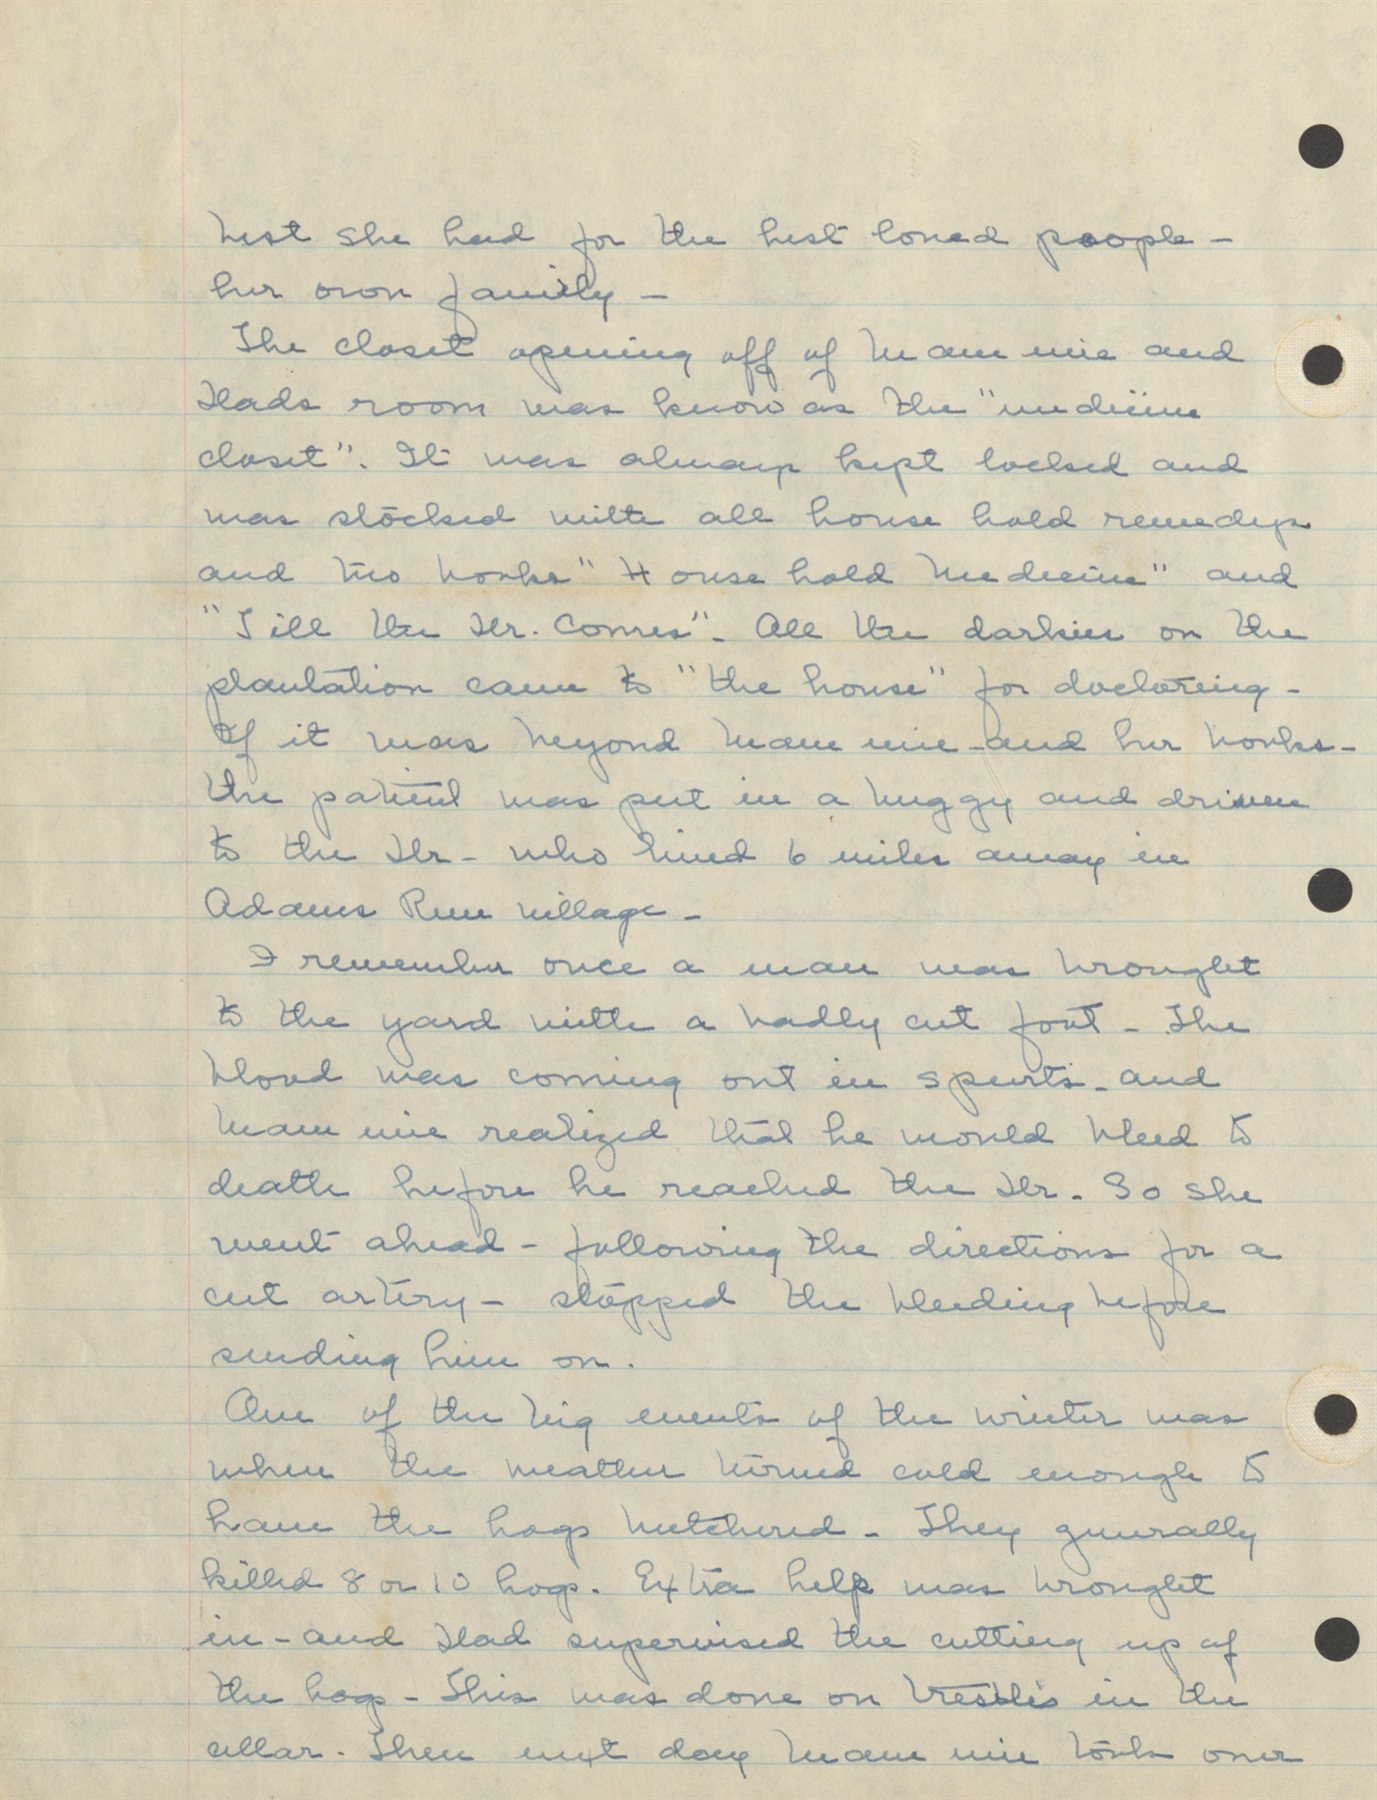 best she had for the best loved people -
her own family -
The closet opening off of Mammie and
Dads room was know as the "medicine
closet". It was always kept locked and
was stocked with all house hold remedys
and two books "House hold Medicine" and
"Till the Dr. Comes". All the darkies on the
plantation came to "the house" for doctoring -
If it was beyond Mammie - and her books -
the patient was put in a buggy and driven
to the Dr - who lived 6 miles away in
Adams Run village -
I remember once a man was brought
to the yard with a badly cut foot - The
blood was coming out in spurts - and
Mammie realized that he would bleed to
death before he reached the Dr. So she
went ahead - following the directions for a
cut artery - stopped the bleeding before
sending him on.
One of the big events of the winter was
when the weather turned cold enough to
have the hogs butchered - They generally
killed 8 or 10 hogs. Extra help was brought
in - and Dad supervised the cutting up of
the hogs - This was done on trestles in the
cellar. Then next day Mammie took over